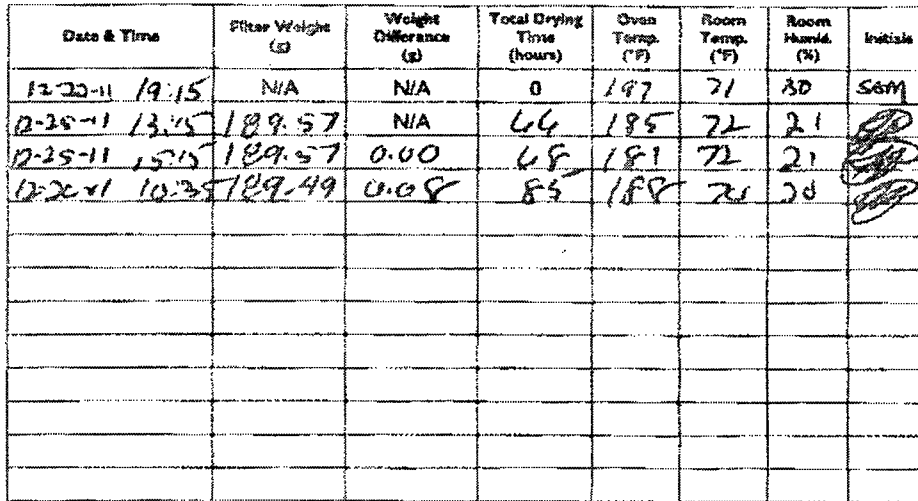 Date & Time Filter Weight (g) Weight Difference (g) Total Drying Time (hours) Oven Temp. (°F) Room Temp. (°F) Room Humid. (%) Initials
12-22-11 19:15 N/A N/A 0 197 71 30 SGM
12-25-11 13:15 189.57 N/A 185 72 21
12-25-11 15:15 189.57 0.00 181 72 21
10:35 189.49 0.08 85 188